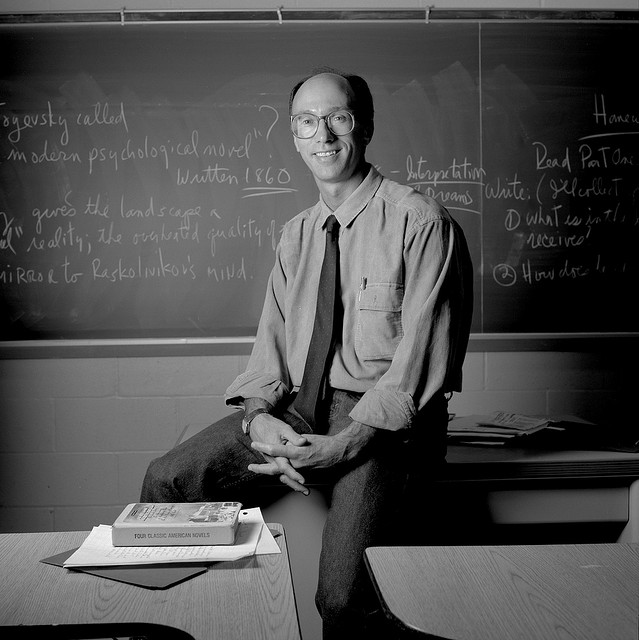 ogevsky called
modern psychological novel"?
Written 1860
gives the landscape a
reality; the overheated quality of
MIRROR to Raskolnikov's MIND.
- Interpretation
Dreams
Read Part One
Write:
① What is in the
received
② How does
FOUR CLASSIC AMERICAN NOVELS